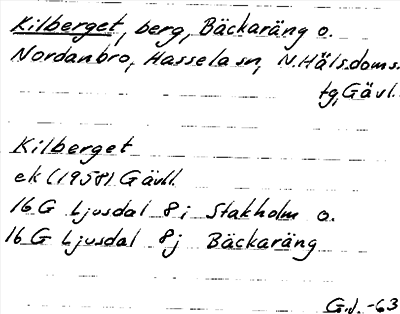 Kilberget, berg, Bäckaräng o.
Nordanbro, Hassela sn, N. Häls. doms.
tg, Gävl.
Kilberget
ek (1958) Gävll.
16 G Ljusdal 8 i Stakholm o.
16 G Ljusdal 8j Bäckaräng
G.J. -63